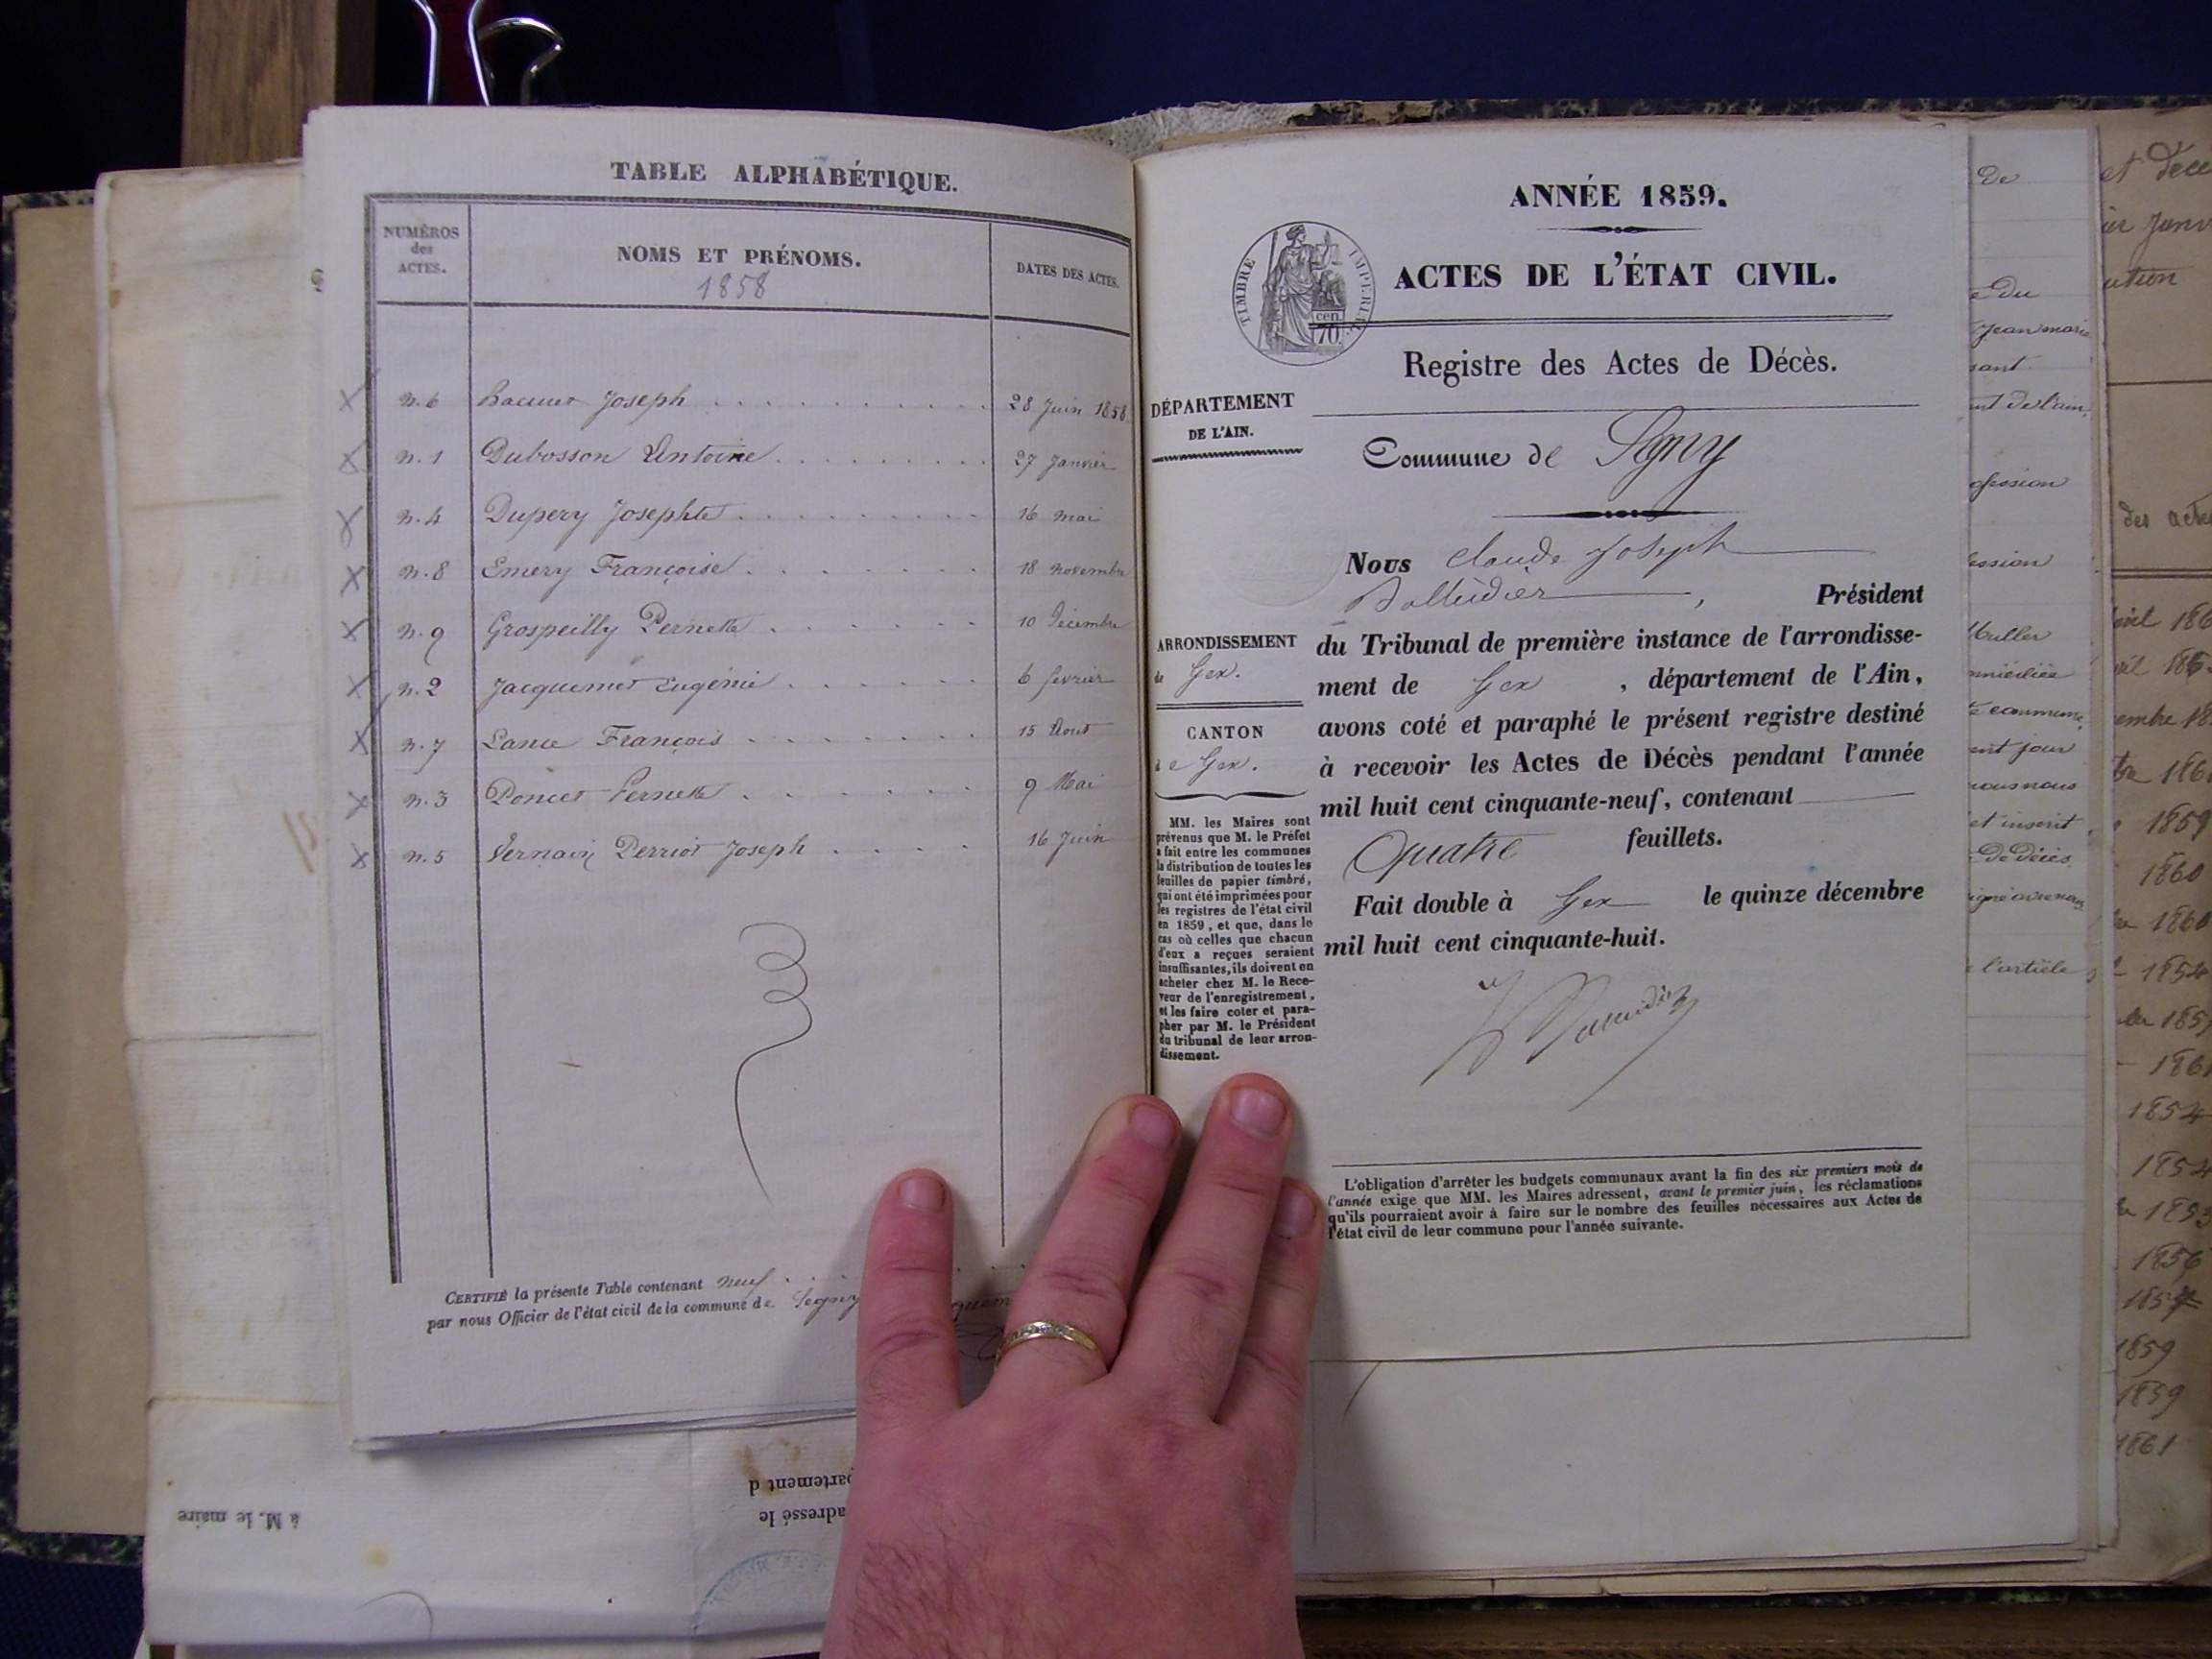 TABLE ALPHABÉTIQUE.
NUMÉROS
des
ACTES.
NOMS ET PRÉNOMS.
1858
DATES DES ACTES.
n. 6 Joseph 28 Juin 1858
n. 1 Dubosson Antoine 27 Janvier
n. 4 Dupery Josephte 16 mai
n. 8 Emery Françoise 18 novembre
n. 9 Grospeilly Pernette 10 Décembre
n. 2 Jacquemet Eugénie 6 fevrier
n. 7 Lance François 15 Aout
n. 3 Poncet Pernette 9 Mai
n. 5 Vernain Perriot Joseph 16 Juin
CERTIFIÉ la présente Table contenant neuf
par nous Officier de l'état civil de la commune de Segny
à M. le maire
adressé le
ANNÉE 1859.
ACTES DE L'ÉTAT CIVIL.
TIMBRE IMPÉRIAL
70 cen.
Registre des Actes de Décès.
DÉPARTEMENT
DE L'AIN.
Commune de Segny
Nous Claude Joseph
, Président
ARRONDISSEMENT
de Gex.
CANTON
de Gex.
du Tribunal de première instance de l'arrondisse-
ment de Gex , département de l'Ain,
avons coté et paraphé le présent registre destiné
à recevoir les Actes de Décès pendant l'année
mil huit cent cinquante-neuf, contenant
Quatre feuillets.
Fait double à Gex le quinze décembre
mil huit cent cinquante-huit.
MM. les Maires sont
prévenus que M. le Préfet
a fait entre les communes
la distribution de toutes les
feuilles de papier timbré,
qui ont été imprimées pour
les registres de l'état civil
en 1859, et que, dans le
cas où celles que chacun
d'eux a reçues seraient
insuffisantes, ils doivent en
acheter chez M. le Rece-
veur de l'enregistrement,
et les faire coter et para-
pher par M. le Président
du tribunal de leur arron-
dissement.
L'obligation d'arrêter les budgets communaux avant la fin des six premiers mois de
l'année exige que MM. les Maires adressent, avant le premier juin, les réclamations
qu'ils pourraient avoir à faire sur le nombre des feuilles nécessaires aux Actes de
l'état civil de leur commune pour l'année suivante.
De
Jean marie
commune
et inscrit
De Décès
l'article
des actes
1859
1860
1860
1854
1854
1856
1859
1859
1861